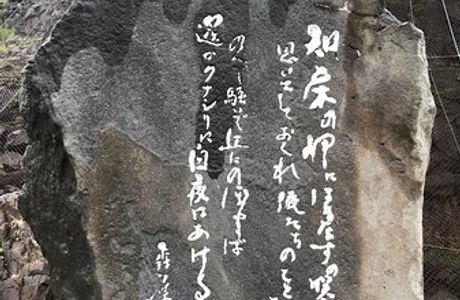 知床の岬に はまなすの咲く
思い出しておくれ 俺たちのこと
のんで騒いで 丘にのぼれば
遥かクナシリに 白夜はあける
森繁